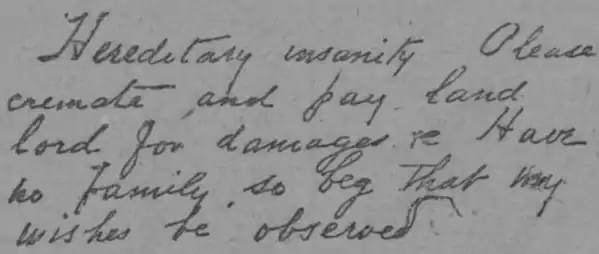 Hereditary insanity Please
cremate and pay land
lord for damages &c Have
no family so beg that my
wishes be observed